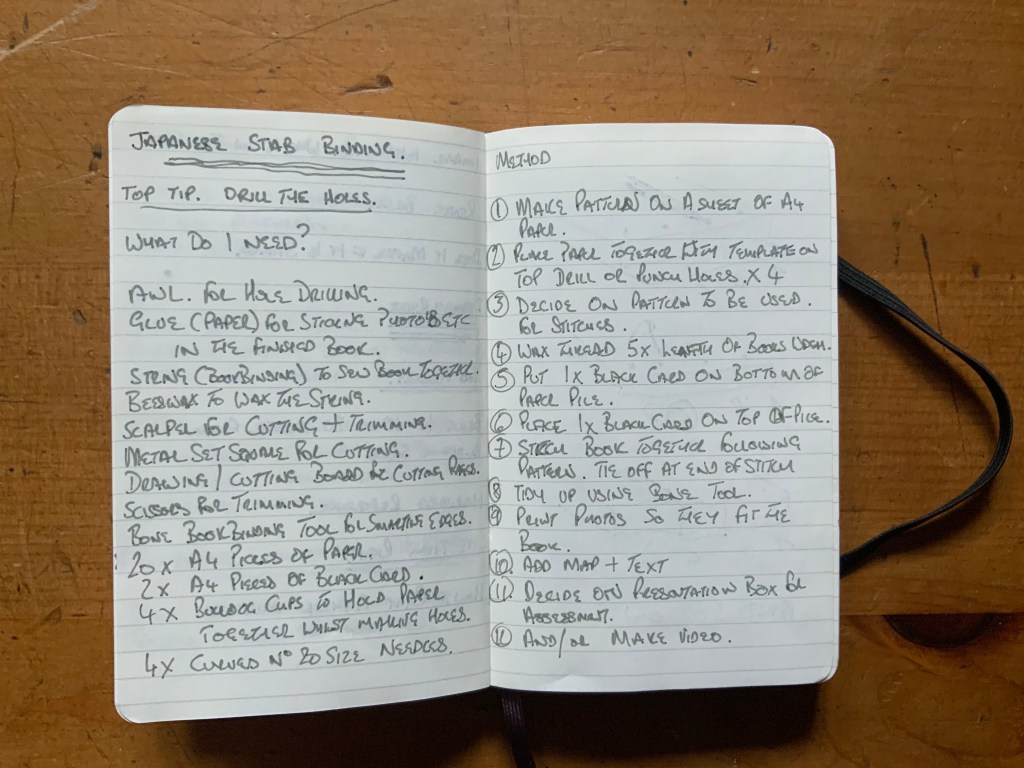 JAPANESE STAB BINDING.
TOP TIP. DRILL THE HOLES.
WHAT DO I NEED?
AWL. FOR HOLE DRILLING.
GLUE (PAPER) FOR STICKING PHOTO'S ETC
IN THE FINISHED BOOK.
STRING (BOOKBINDING) TO SEW BOOK TOGETHER.
BEESWAX TO WAX THE STRING.
SCALPEL FOR CUTTING + TRIMMING.
METAL SET SQUARE FOR CUTTING.
DRAWING / CUTTING BOARD FOR CUTTING PAGES.
SCISSORS FOR TRIMMING.
BONE BOOKBINDING TOOL FOR EDGES.
20 X A4 PIECES OF PAPER.
2 X A4 PIECES OF BLACK CARD.
4 X BULLDOG CLIPS TO HOLD PAPER
TOGETHER WHILST MAKING HOLES.
4 X CURVED Nº 20 SIZE NEEDLES.
METHOD
① MAKE PATTERN ON A SHEET OF A4
PAPER.
② PLACE PAPER TOGETHER WITH TEMPLATE ON
TOP DRILL OR PUNCH HOLES. X 4
③ DECIDE ON PATTERN TO BE USED.
FOR STITCHES.
④ WAX THREAD 5X LENGTH OF BOOKS
⑤ PUT 1X BLACK CARD ON BOTTOM OF
PAPER PILE.
⑥ PLACE 1X BLACK CARD ON TOP OF PILE.
⑦ STITCH BOOK TOGETHER FOLLOWING
PATTERN. TIE OFF AT END OF STITCH
⑧ TIDY UP USING BONE TOOL.
⑨ PRINT PHOTOS SO THEY FIT THE
BOOK.
⑩ ADD MAP + TEXT
⑪ DECIDE ON PRESENTATION BOX FOR
ASSESSMENT.
AND/OR MAKE VIDEO.